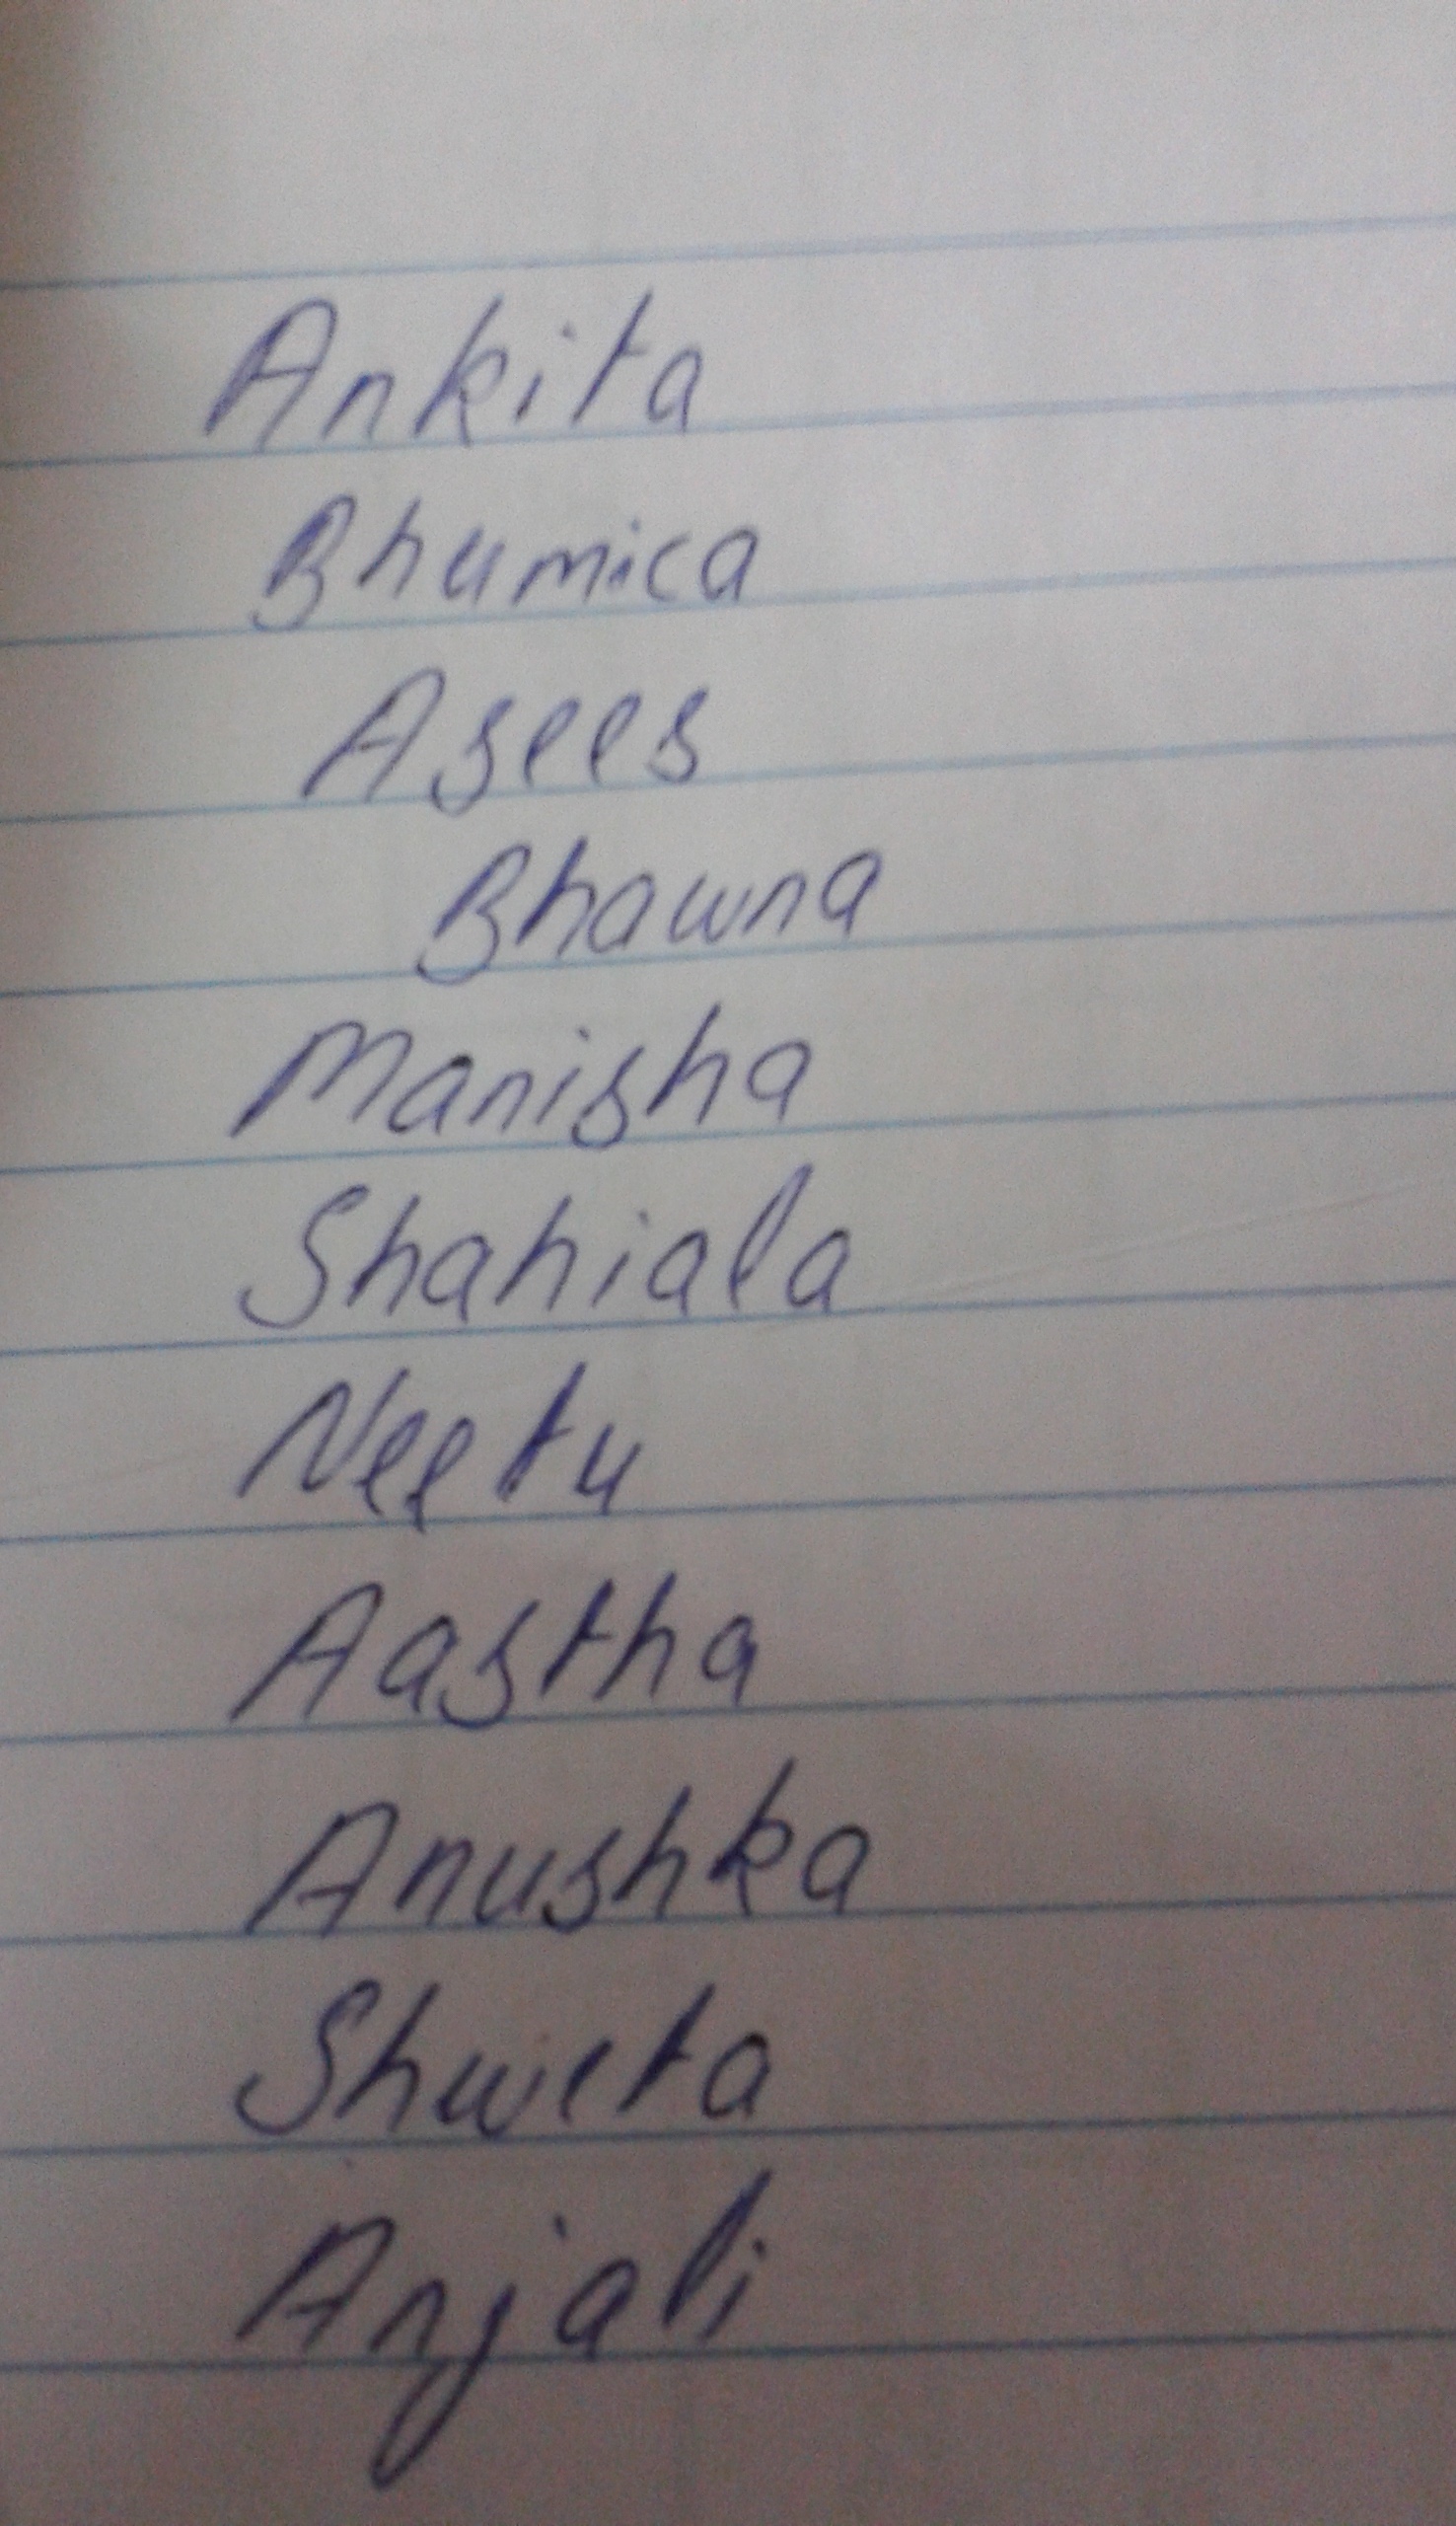 Ankita
Bhumica
Asees
Bhawna
Manisha
Shahiala
Neetu
Aastha
Anushka
Shweta
Anjali